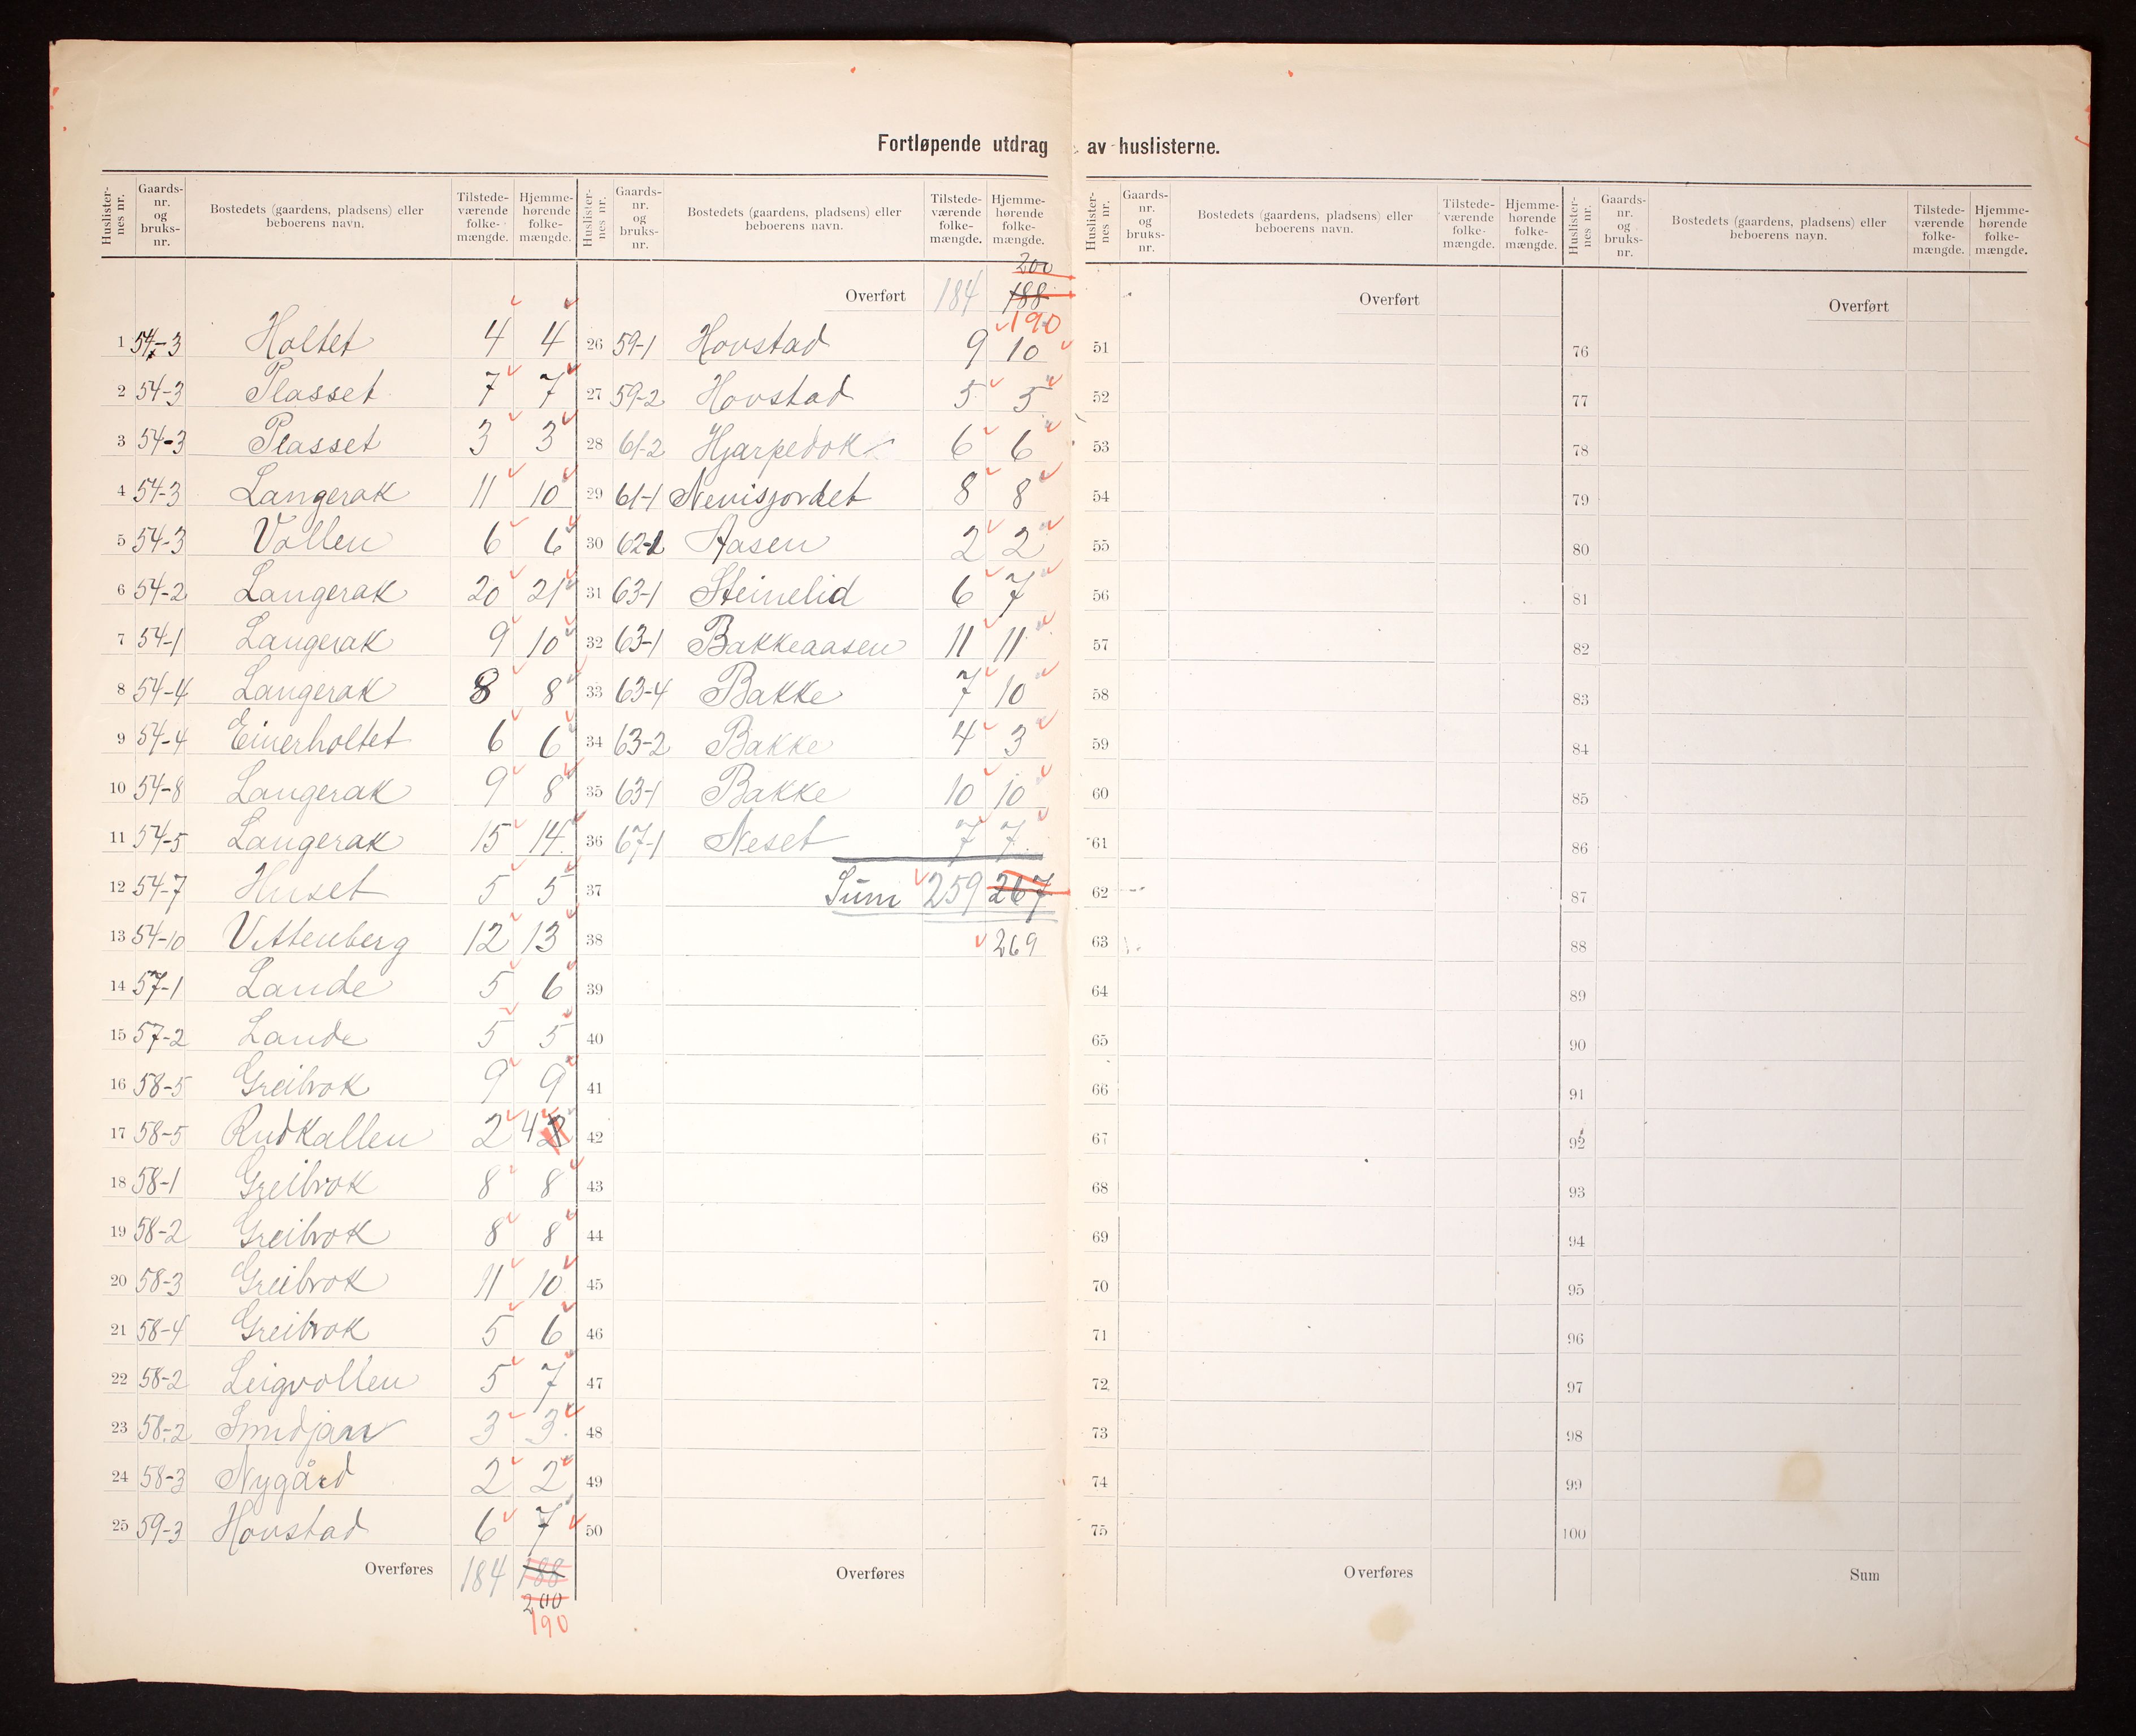 Fortløpende utdrag av huslisterne.
Huslister-nes nr. | Gaards-nr. og bruks-nr. | Bostedets (gaardens, pladsens) eller beboerens navn. | Tilstede-værende folke-mængde. | Hjemme-hørende folke-mængde.
1 54-3 Holtet 4 4
2 54-3 Plasset 7 7
3 54-3 Plasset 3 3
4 54-3 Langerak 11 10
5 54-3 Vollen 6 6
6 54-2 Langerak 20 21
7 54-1 Langerak 9 10
8 54-4 Langerak 8 8
9 54-4 Einerholtet 6 6
10 54-8 Langerak 9 8
11 54-5 Langerak 15 14
12 54-7 Huset 5 5
13 54-10 Vittenberg 12 13
14 57-1 Lande 5 6
15 57-2 Lande 5 5
16 58-5 Greibrok 9 9
17 58-5 Rudkallen 2 4
18 58-1 Greibrok 8 8
19 58-2 Greibrok 8 8
20 58-3 Greibrok 11 10
21 58-4 Greibrok 5 6
22 58-2 Leigvollen 5 7
23 58-2 Smidjan 3 3
24 58-3 Nygård 2 2
25 59-3 Hovstad 6 7
Overføres 184 188
200
190
Huslister-nes nr. | Gaards-nr. og bruks-nr. | Bostedets (gaardens, pladsens) eller beboerens navn. | Tilstede-værende folke-mængde. | Hjemme-hørende folke-mængde.
200
Overført 184 188
190
26 59-1 Hovstad 9 10
27 59-2 Hovstad 5 5
28 61-2 Hjarpedok 6 6
29 61-1 Nevisjordet 8 8
30 62-1 Aasen 2 2
31 63-1 Steinelid 6 7
32 63-1 Bakkeaasen 11 11
33 63-4 Bakke 7 10
34 63-2 Bakke 4 3
35 63-1 Bakke 10 10
36 67-1 Neset 7 7
37 Sum 259 267
38 269
39
40
41
42
43
44
45
46
47
48
49
50
Overføres
Huslister-nes nr. | Gaards-nr. og bruks-nr. | Bostedets (gaardens, pladsens) eller beboerens navn. | Tilstede-værende folke-mængde. | Hjemme-hørende folke-mængde.
Overført
51
52
53
54
55
56
57
58
59
60
61
62
63
64
65
66
67
68
69
70
71
72
73
74
75
Overføres
Huslister-nes nr. | Gaards-nr. og bruks-nr. | Bostedets (gaardens, pladsens) eller beboerens navn. | Tilstede-værende folke-mængde. | Hjemme-hørende folke-mængde.
Overført
76
77
78
79
80
81
82
83
84
85
86
87
88
89
90
91
92
93
94
95
96
97
98
99
100
Sum